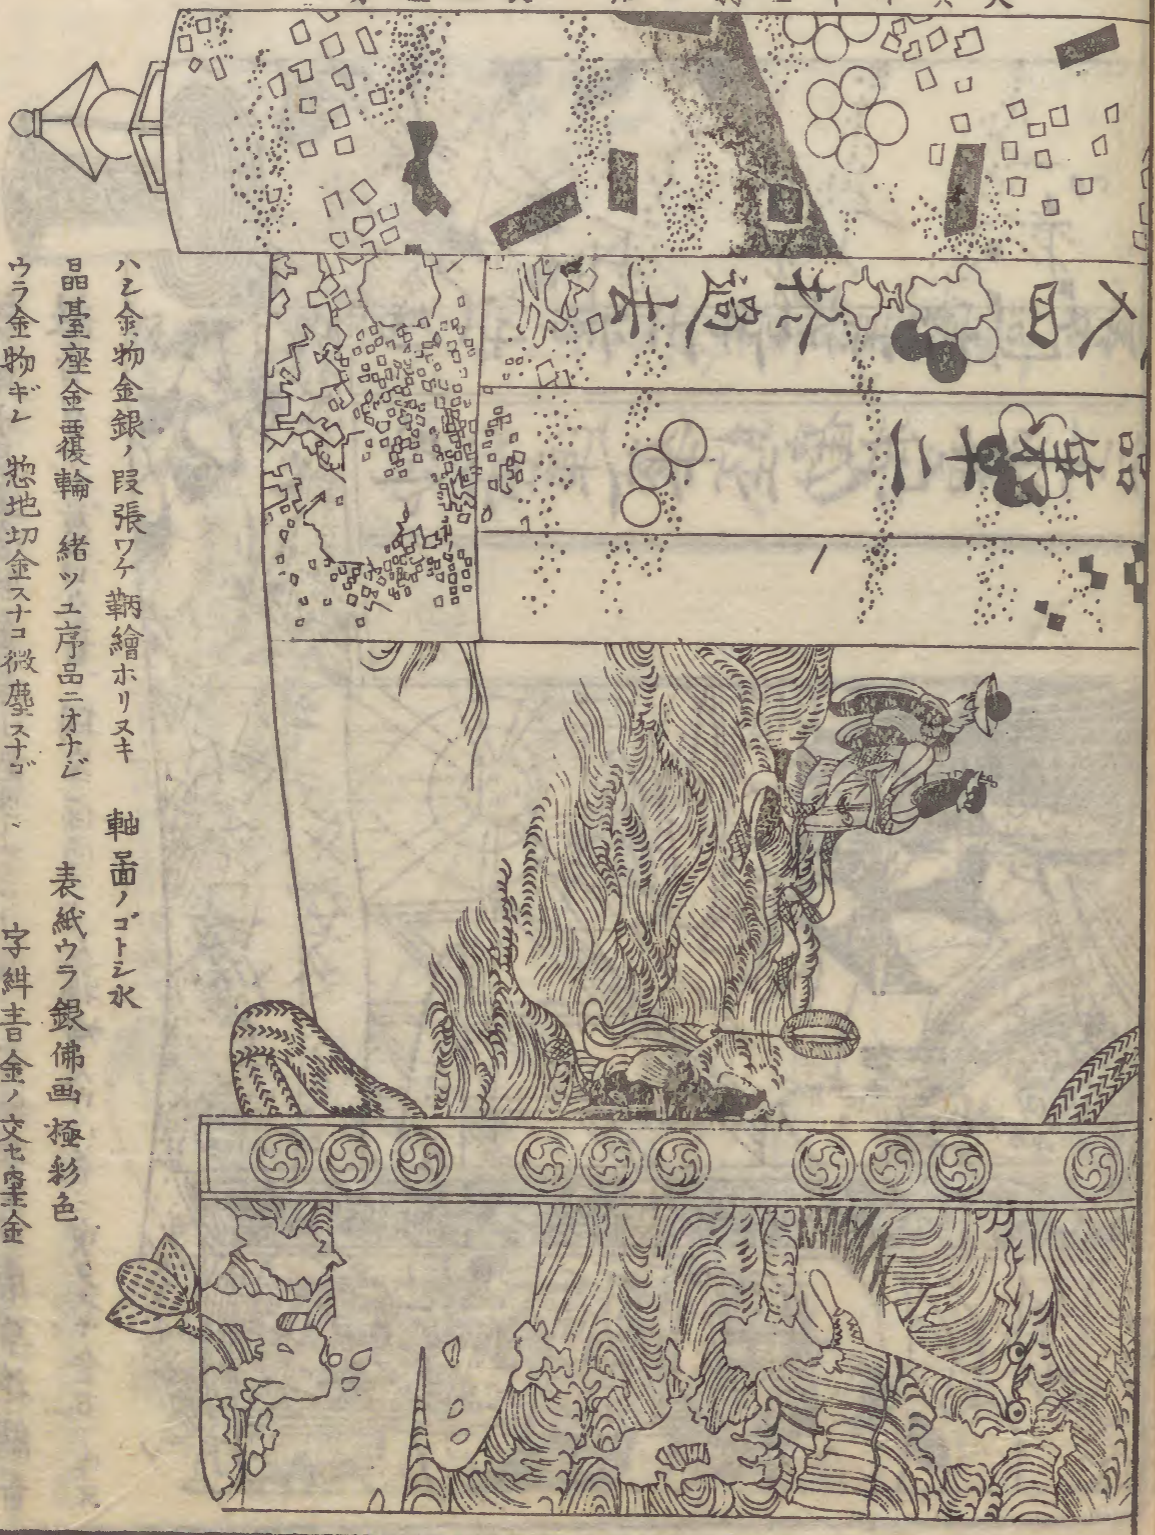 品第十二
人四於過去
ハシ金物金銀ノ段張ワケ鞆繪ホリヌキ　軸畵ノゴトシ水
晶臺座金覆輪　緒ツユ序品ニオナジ　表紙ウラ銀佛画極彩色
ウラ金物ギレ　惣地切金スナコ微塵スナゴ　字紺青金ノ文セ塗金